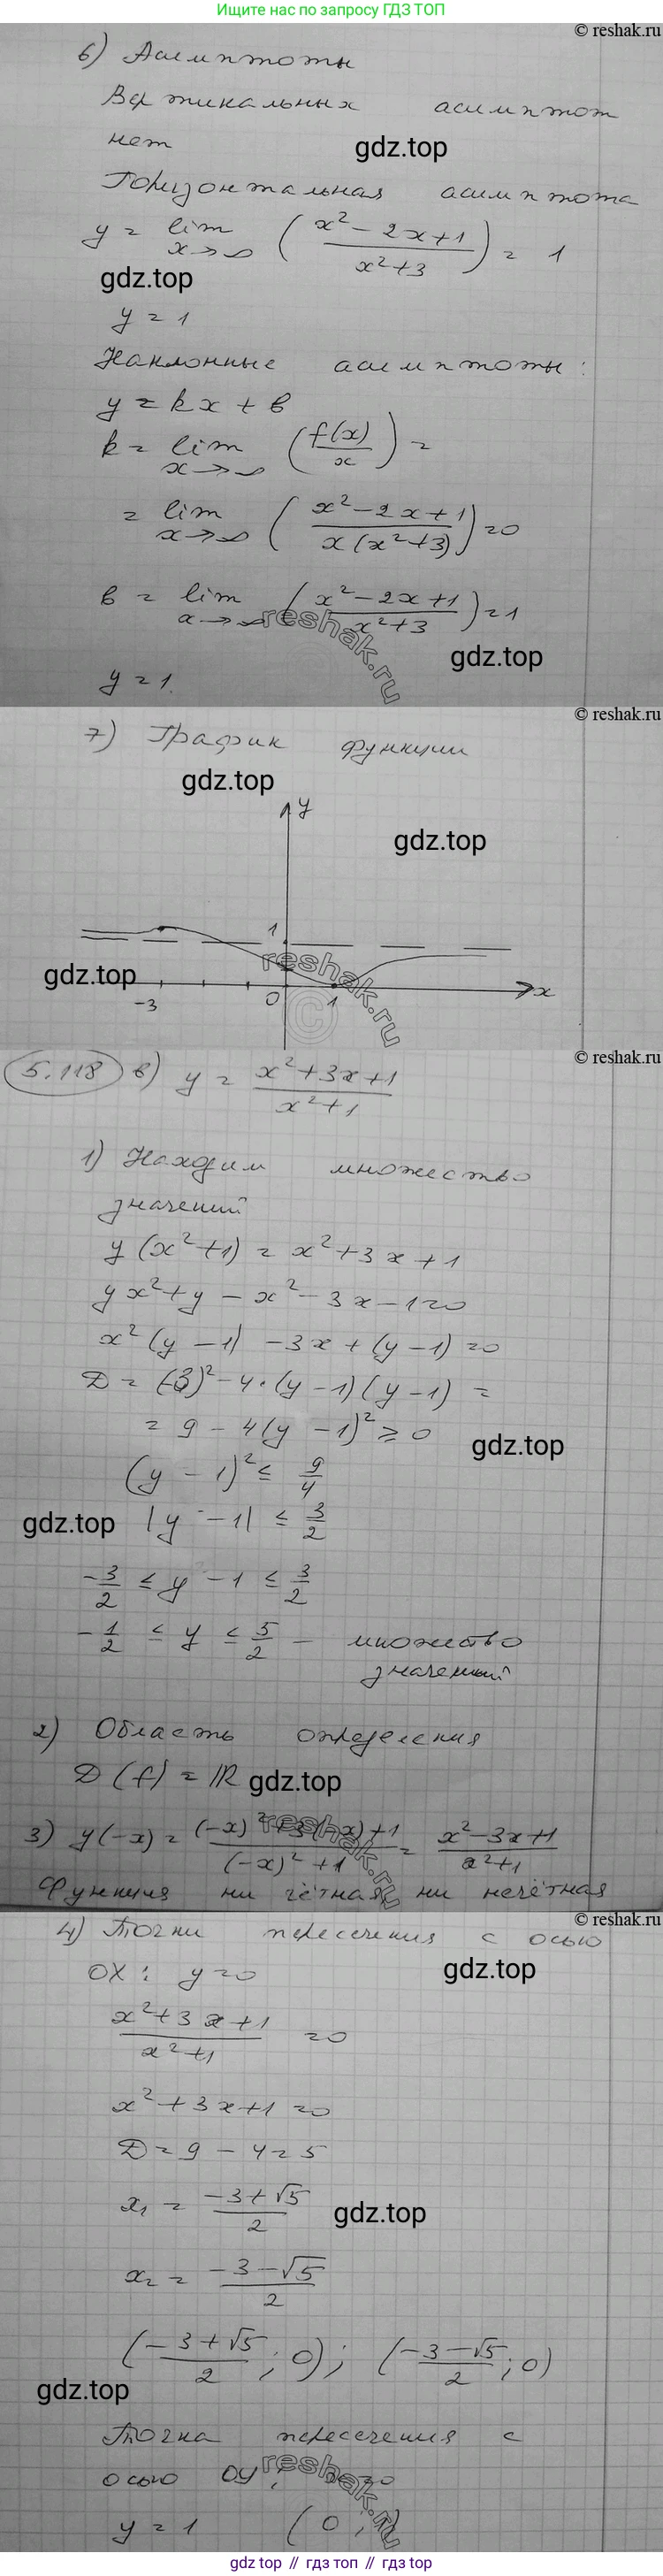 Ищите нас по запросу ГДЗ ТОП
© reshak.ru
6) Асимптоты
Вертикальных асимптот
нет
gdz.top
Горизонтальная асимптота
y = lim x→∞ ((x² - 2x + 1)/(x² + 3)) = 1
gdz.top
y = 1
Наклонные асимптоты:
y = kx + b
k = lim x→∞ (f(x)/x) =
= lim x→∞ ((x² - 2x + 1)/(x(x² + 3))) = 0
b = lim x→∞ ((x² - 2x + 1)/(x² + 3)) = 1
reshak.ru
gdz.top
y = 1.
© reshak.ru
7) График функции
gdz.top
y
gdz.top
1
reshak.ru
gdz.top
-3 0 1 x
©
© reshak.ru
5.118 в) y = (x² + 3x + 1)/(x² + 1)
1) Находим множество
значений
y(x² + 1) = x² + 3x + 1
yx² + y - x² - 3x - 1 = 0
x²(y - 1) - 3x + (y - 1) = 0
D = (-3)² - 4·(y - 1)(y - 1) =
= 9 - 4(y - 1)² ≥ 0
gdz.top
(y - 1)² ≤ 9/4
gdz.top
|y - 1| ≤ 3/2
-3/2 ≤ y - 1 ≤ 3/2
-1/2 ≤ y ≤ 5/2 - множество
значений
2) Область определения
D(f) = R
gdz.top
3) y(-x) = ((-x)² + 3(-x) + 1)/((-x)² + 1) = (x² - 3x + 1)/(x² + 1)
reshak.ru
Функция ни чётная, ни нечётная
© reshak.ru
4) Точки пересечения с осью
OX: y = 0
gdz.top
(x² + 3x + 1)/(x² + 1) = 0
x² + 3x + 1 = 0
D = 9 - 4 = 5
x₁ = (-3 + √5)/2
gdz.top
x₂ = (-3 - √5)/2
((-3 + √5)/2; 0); ((-3 - √5)/2; 0)
gdz.top
Точка пересечения с
осью OY; x = 0
reshak.ru
y = 1 (0; 1)
gdz top // гдз топ // gdz top